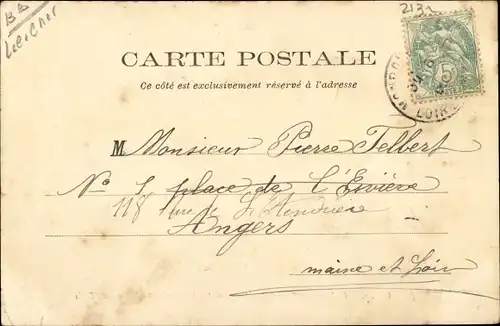 BB
Loir Cher
2132
CARTE POSTALE
Ce côté est exclusivement réservé à l'adresse
MONDOU
LOIR
5
M Monsieur Pierre Telbert
No 5 place de l'Esvière
118 Rue de
Angers
maine et Loire